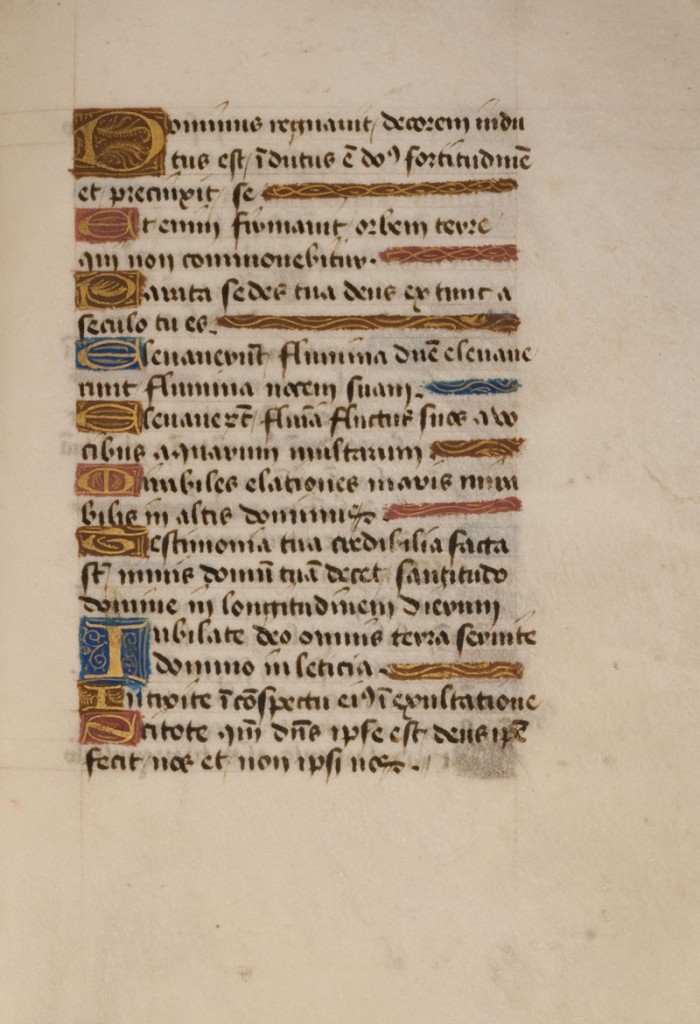 Dominus regnauit decorem indu
tus est īdutus ē doꝰ fortitudinē
et precinxit se
Etenim firmauit orbem terre
qui non commouebitur.
Parata sedes tua deus ex tunc a
seculo tu es.
Eleuauerūt flumina dn̄e eleuaue
runt flumina uocem suam.
Eleuauerūt flūia fluctus suos a vo
cibus aquarum multarum
Mirabiles elationes maris mira
bilis in altis dominus.
Testimonia tua credibilia facta
st̄ nimis domū tuā decet santitudo
domine in longitudinem dierum
Iubilate deo omnis terra seruite
domino in leticia.
Introite ī cōspectu eiꝰ ī exultatione
Scitote qm̄ dn̄s ipse est deus ip̄e
fecit nos et non ipsi nos.